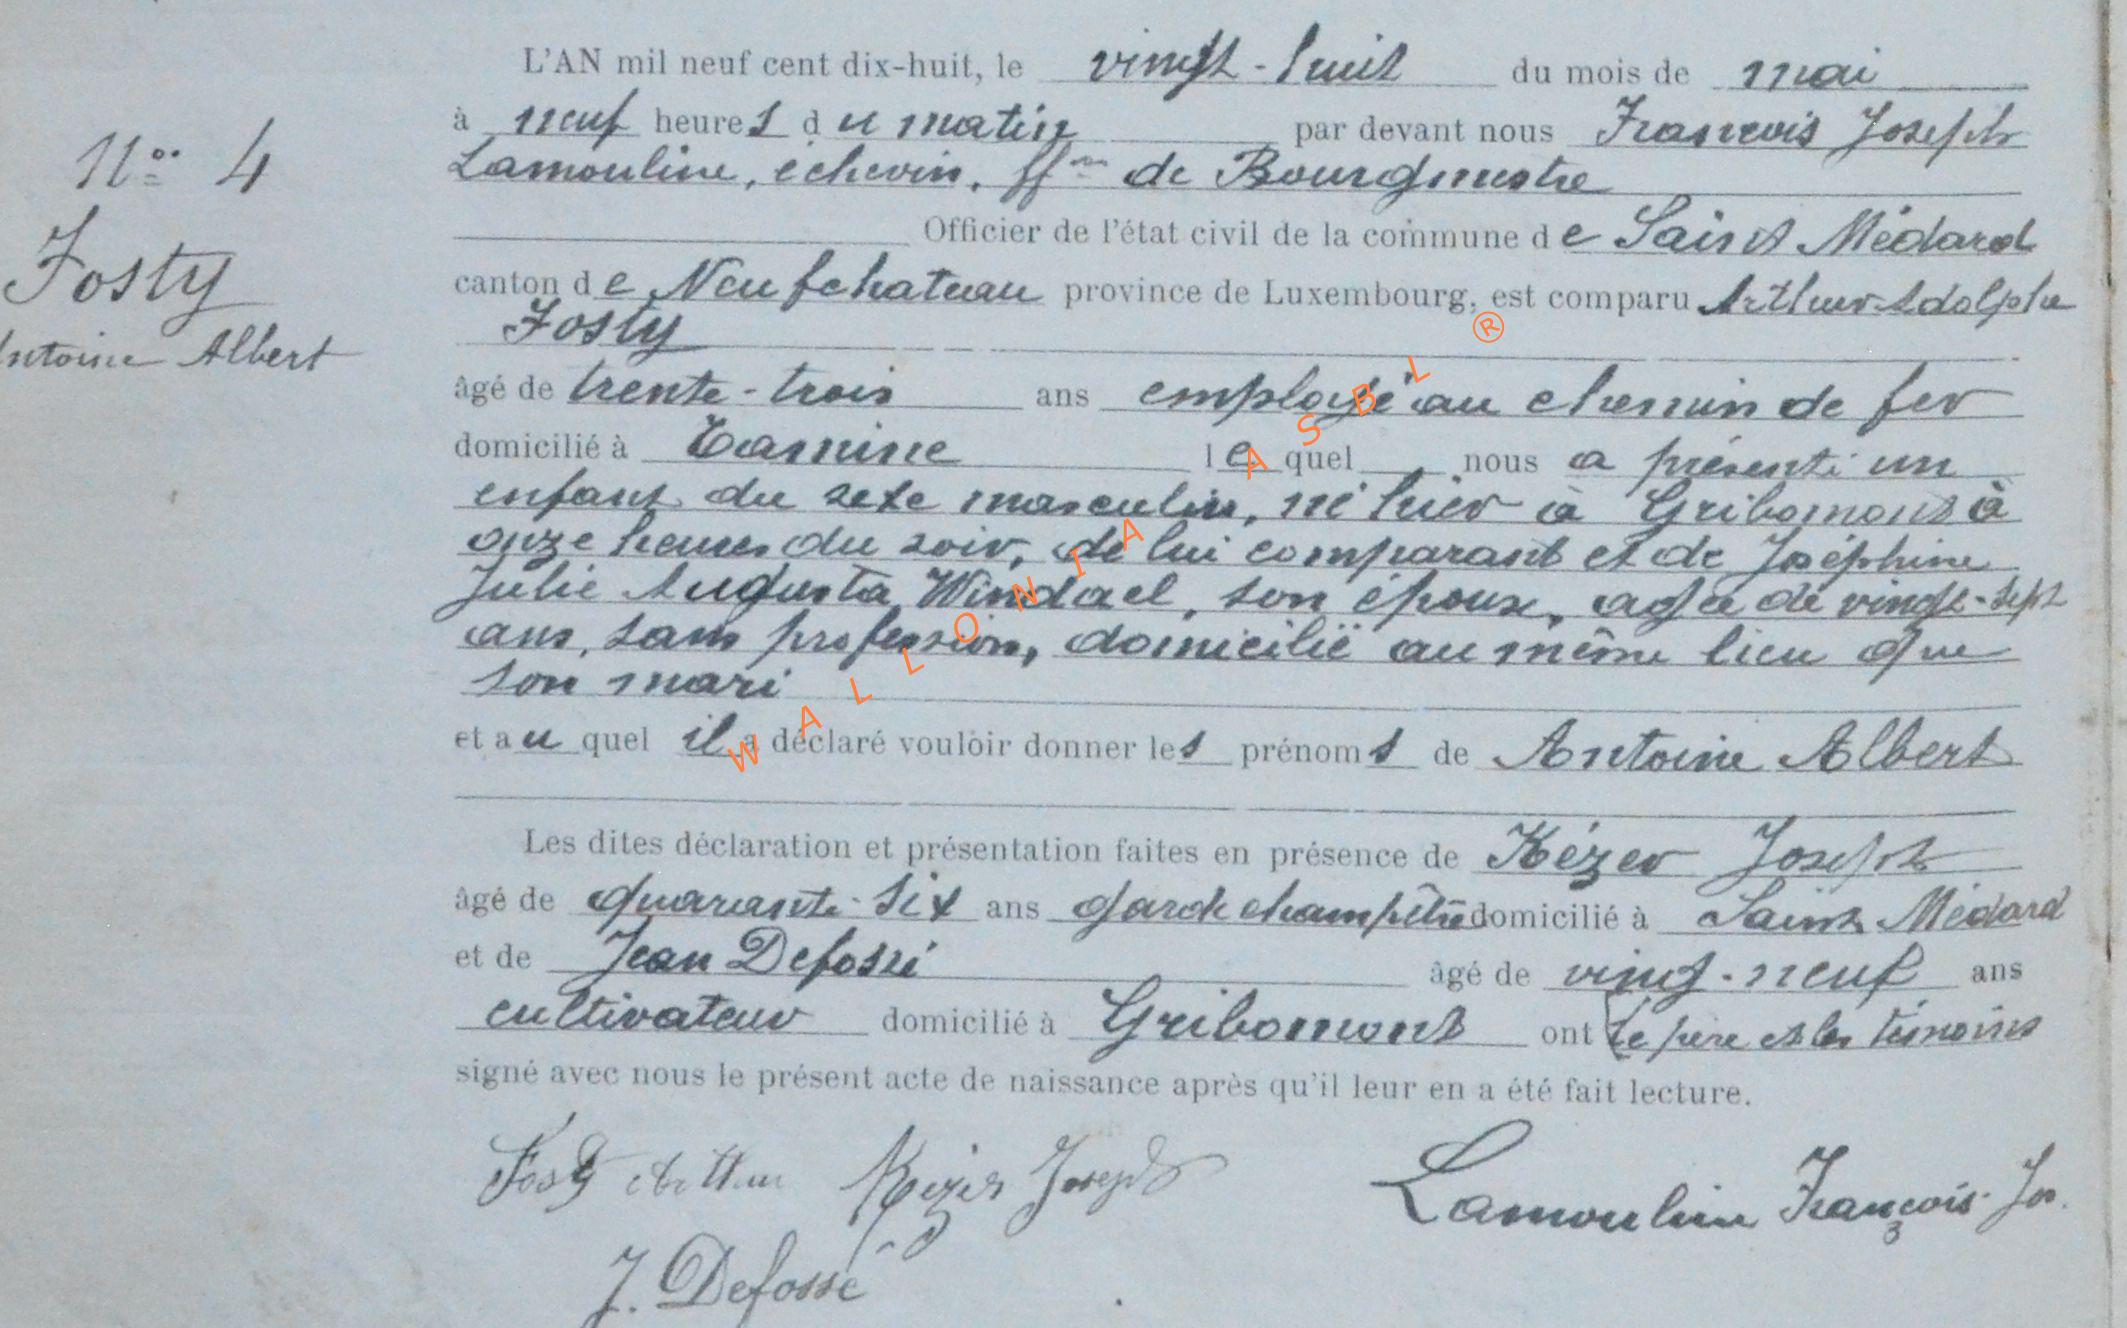 L'AN mil neuf cent dix-huit, le vingt-huit du mois de mai
à neuf heures du matin par devant nous François Joseph
Lamouline, échevin, ff^ns de Bourgmestre
Officier de l'état civil de la commune de Saint Médard
canton de Neufchateau province de Luxembourg, est comparu Arthur-Adolphe
Fosty
âgé de trente-trois ans employé au chemin de fer
domicilié à Tamine lequel nous a présenté un
enfant du sexe masculin, né hier à Gribomont à
onze heures du soir, de lui comparant et de Joséphine
Julie Augusta Windael, son épouse, agée de vingt-sept
ans, sans profession, domicilié au même lieu que
son mari
et auquel il a déclaré vouloir donner les prénoms de Antoine Albert
Les dites déclaration et présentation faites en présence de Kézer Joseph
âgé de quarante-six ans garde champêtre domicilié à Saint Médard
et de Jean Defossé âgé de vingt-neuf ans
cultivateur domicilié à Gribomont ont le père et les témoins
signé avec nous le présent acte de naissance après qu'il leur en a été fait lecture.
Nº 4
Fosty
Antoine Albert
Fosty Arthur Kézer Joseph Lamouline François-Jos.
J. Defossé
WALLONIA ASBL ®